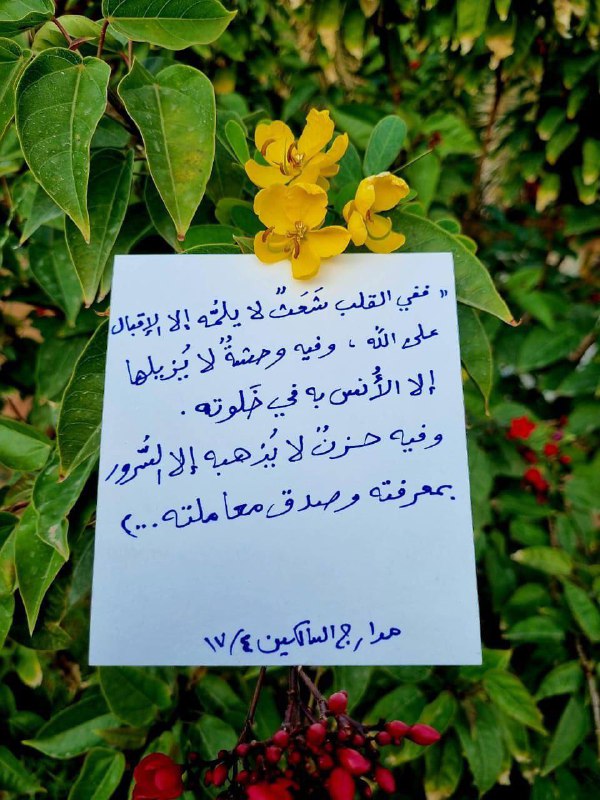 " ففي القلب شَعَثٌ لا يلمُّه إلا الإقبال
على الله ، وفيه وحشةٌ لا يُزيلها
إلا الأُنس به في خَلوته .
وفيه حزنٌ لا يُذهبه إلا السُّرور
بمعرفته وصدق معاملته ... )
مدارج السالكين ٤/ ١٧